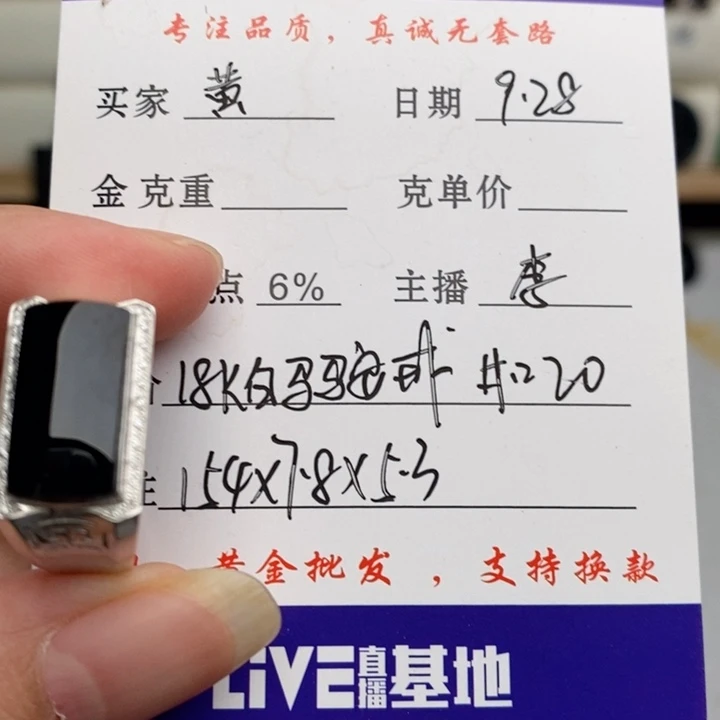 专注品质，真诚无套路
买家 黄 日期 9.28
金克重 克单价
点 6% 主播 李
18K白 #:20
154X7.8X5.3
黄金批发，支持换款
LiVE直播基地